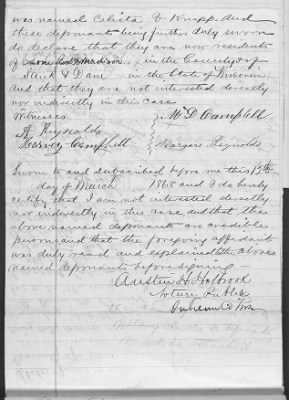 was named Calista E Knapp. And
these deponants being further duly sworn
do declare that they are now residents
of and Madison, in the Countys of
Sauk & Dane in the State of Wisconsin
and that they are not interested directly
nor indirectly in this case
Witnesses
Mc D Campbell
A Reynolds
Harvey Campbell
Margaret Reynolds
Sworn to and subscribed before me this 12th
day of March 1868 and I do hereby
certify that I am not interested directly
nor indirectly in the case, and that the
above named deponants are credible
persons, and that the foregoing affidavit
was duly read and explained to the above
named deponants before signing
Austin H Holbrook
Notary Public